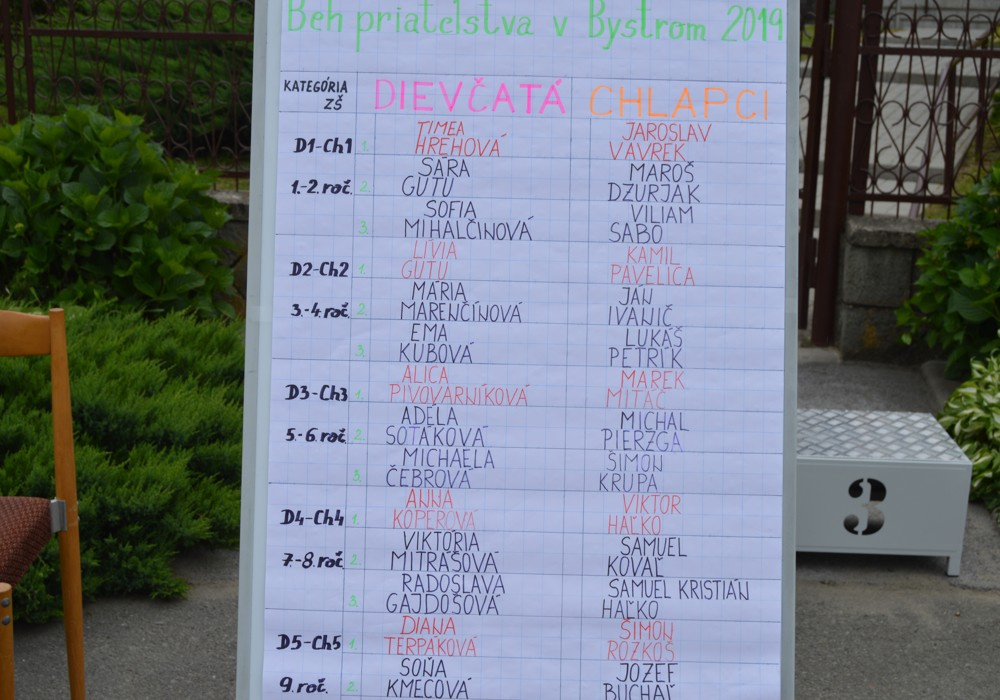 Beh priatelstva v Bystrom 2019
KATEGÓRIA ZŠ DIEVČATÁ CHLAPCI
D1-Ch1 1. TIMEA HREHOVÁ JAROSLAV VAVREK
1.-2. roč. 2. SÁRA GUTU MAROŠ DZURJAK
3. SOFIA MIHALČINOVÁ VILIAM SABO
D2-Ch2 1. LÍVIA GUTU KAMIL PAVELICA
3.-4. roč. 2. MÁRIA MARENČÍNOVÁ JÁN IVANIČ
3. EMA KUBOVÁ LUKÁŠ PETRÍK
D3-Ch3 1. ALICA PIVOVARNÍKOVÁ MAREK MITAĽ
5.-6. roč. 2. ADELA SOTÁKOVÁ MICHAL PIERZGA
3. MICHAELA ČEBROVÁ ŠIMON KRUPA
D4-Ch4 1. ANNA KOPEROVÁ VIKTOR HAĽKO
7.-8. roč. 2. VIKTÓRIA MITRAŠOVÁ SAMUEL KOVAĽ
3. RADOSLAVA GAJDOŠOVÁ SAMUEL KRISTIÁN HAĽKO
D5-Ch5 1. DIANA TERPÁKOVÁ ŠIMON ROZKOŠ
9. roč. 2. SOŇA KMECOVÁ JOZEF BUCHAĽ
3